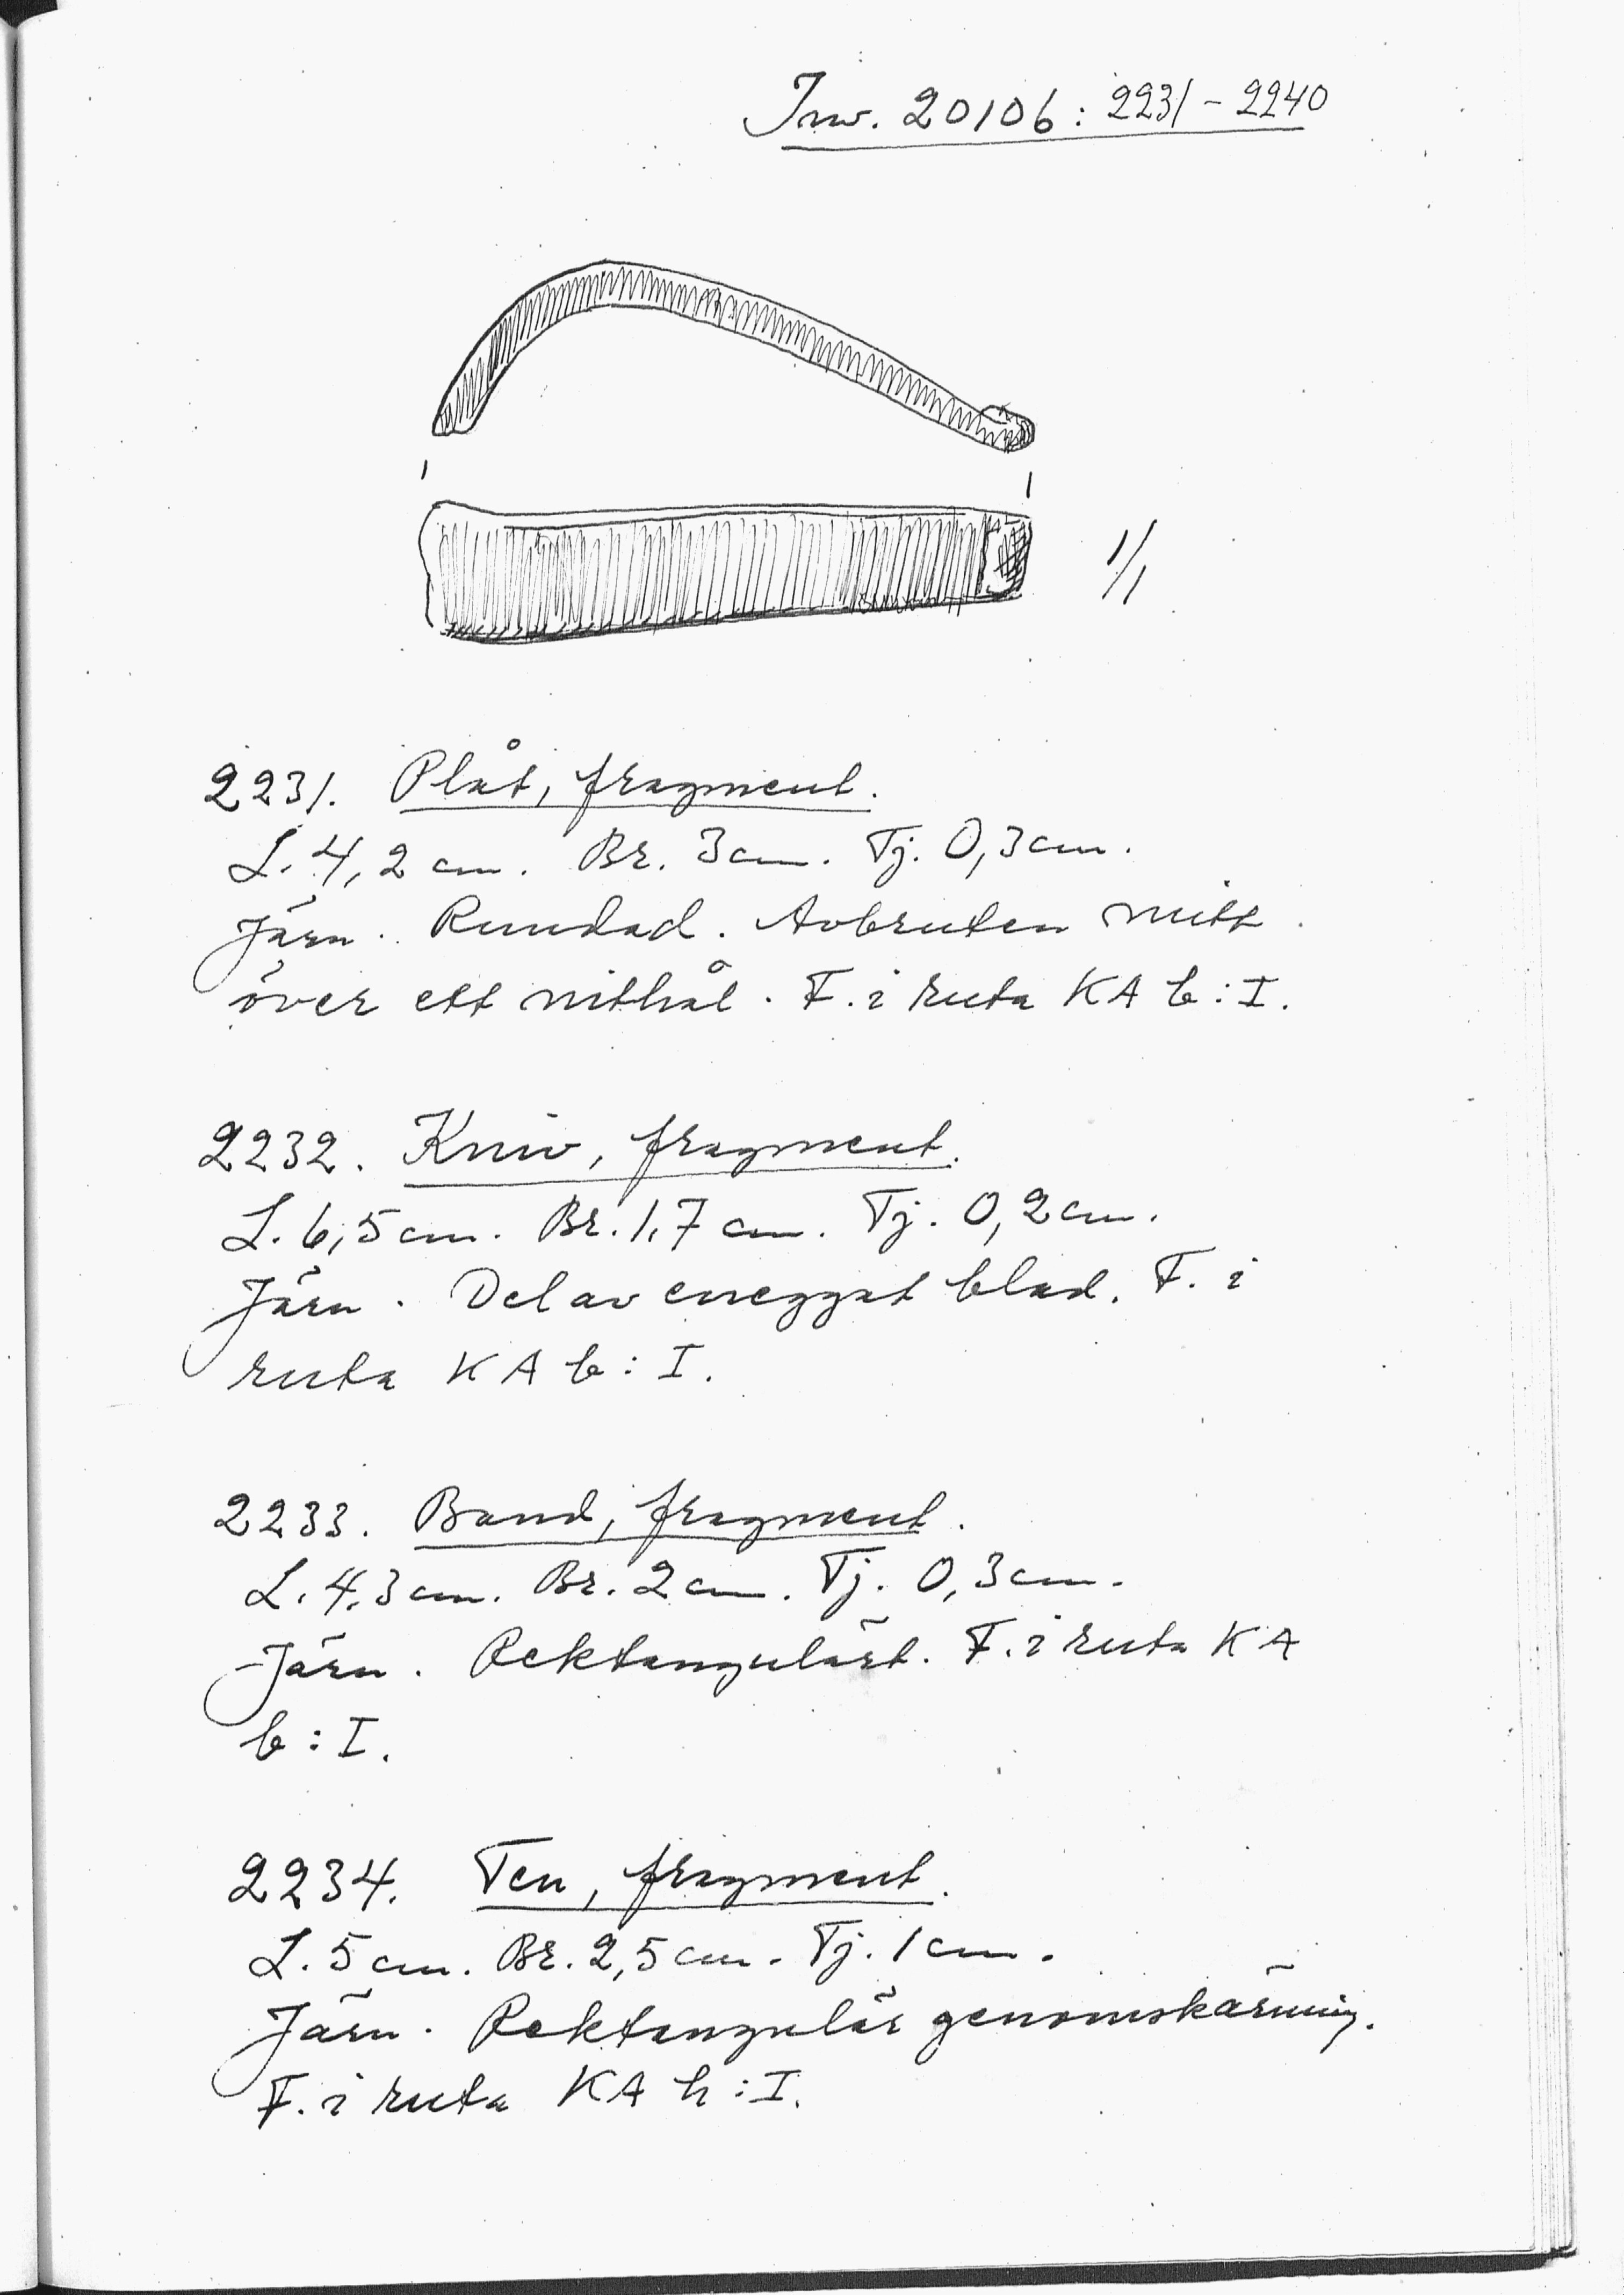 Inv. 20106: 2231-2240
1/1
2231. Plåt, fragment.
L. 4,2 cm. Br. 3 cm. Tj. 0,3 cm.
Järn. Rundad. Avbruten mitt
över ett nithål. F. i ruta KA b:I.
2232. Kniv, fragment.
L. 6,5 cm. Br. 1,7 cm. Tj. 0,2 cm.
Järn. Del av eneggat blad. F. i
ruta KA b:I.
2233. Band, fragment.
L. 4,3 cm. Br. 2 cm. Tj. 0,3 cm.
Järn. Rektangulärt. F. i ruta KA
b:I.
2234. Ten, fragment.
L. 5 cm. Br. 2,5 cm. Tj. 1 cm.
Järn. Rektangulär genomskärning.
F. i ruta KA h:I.